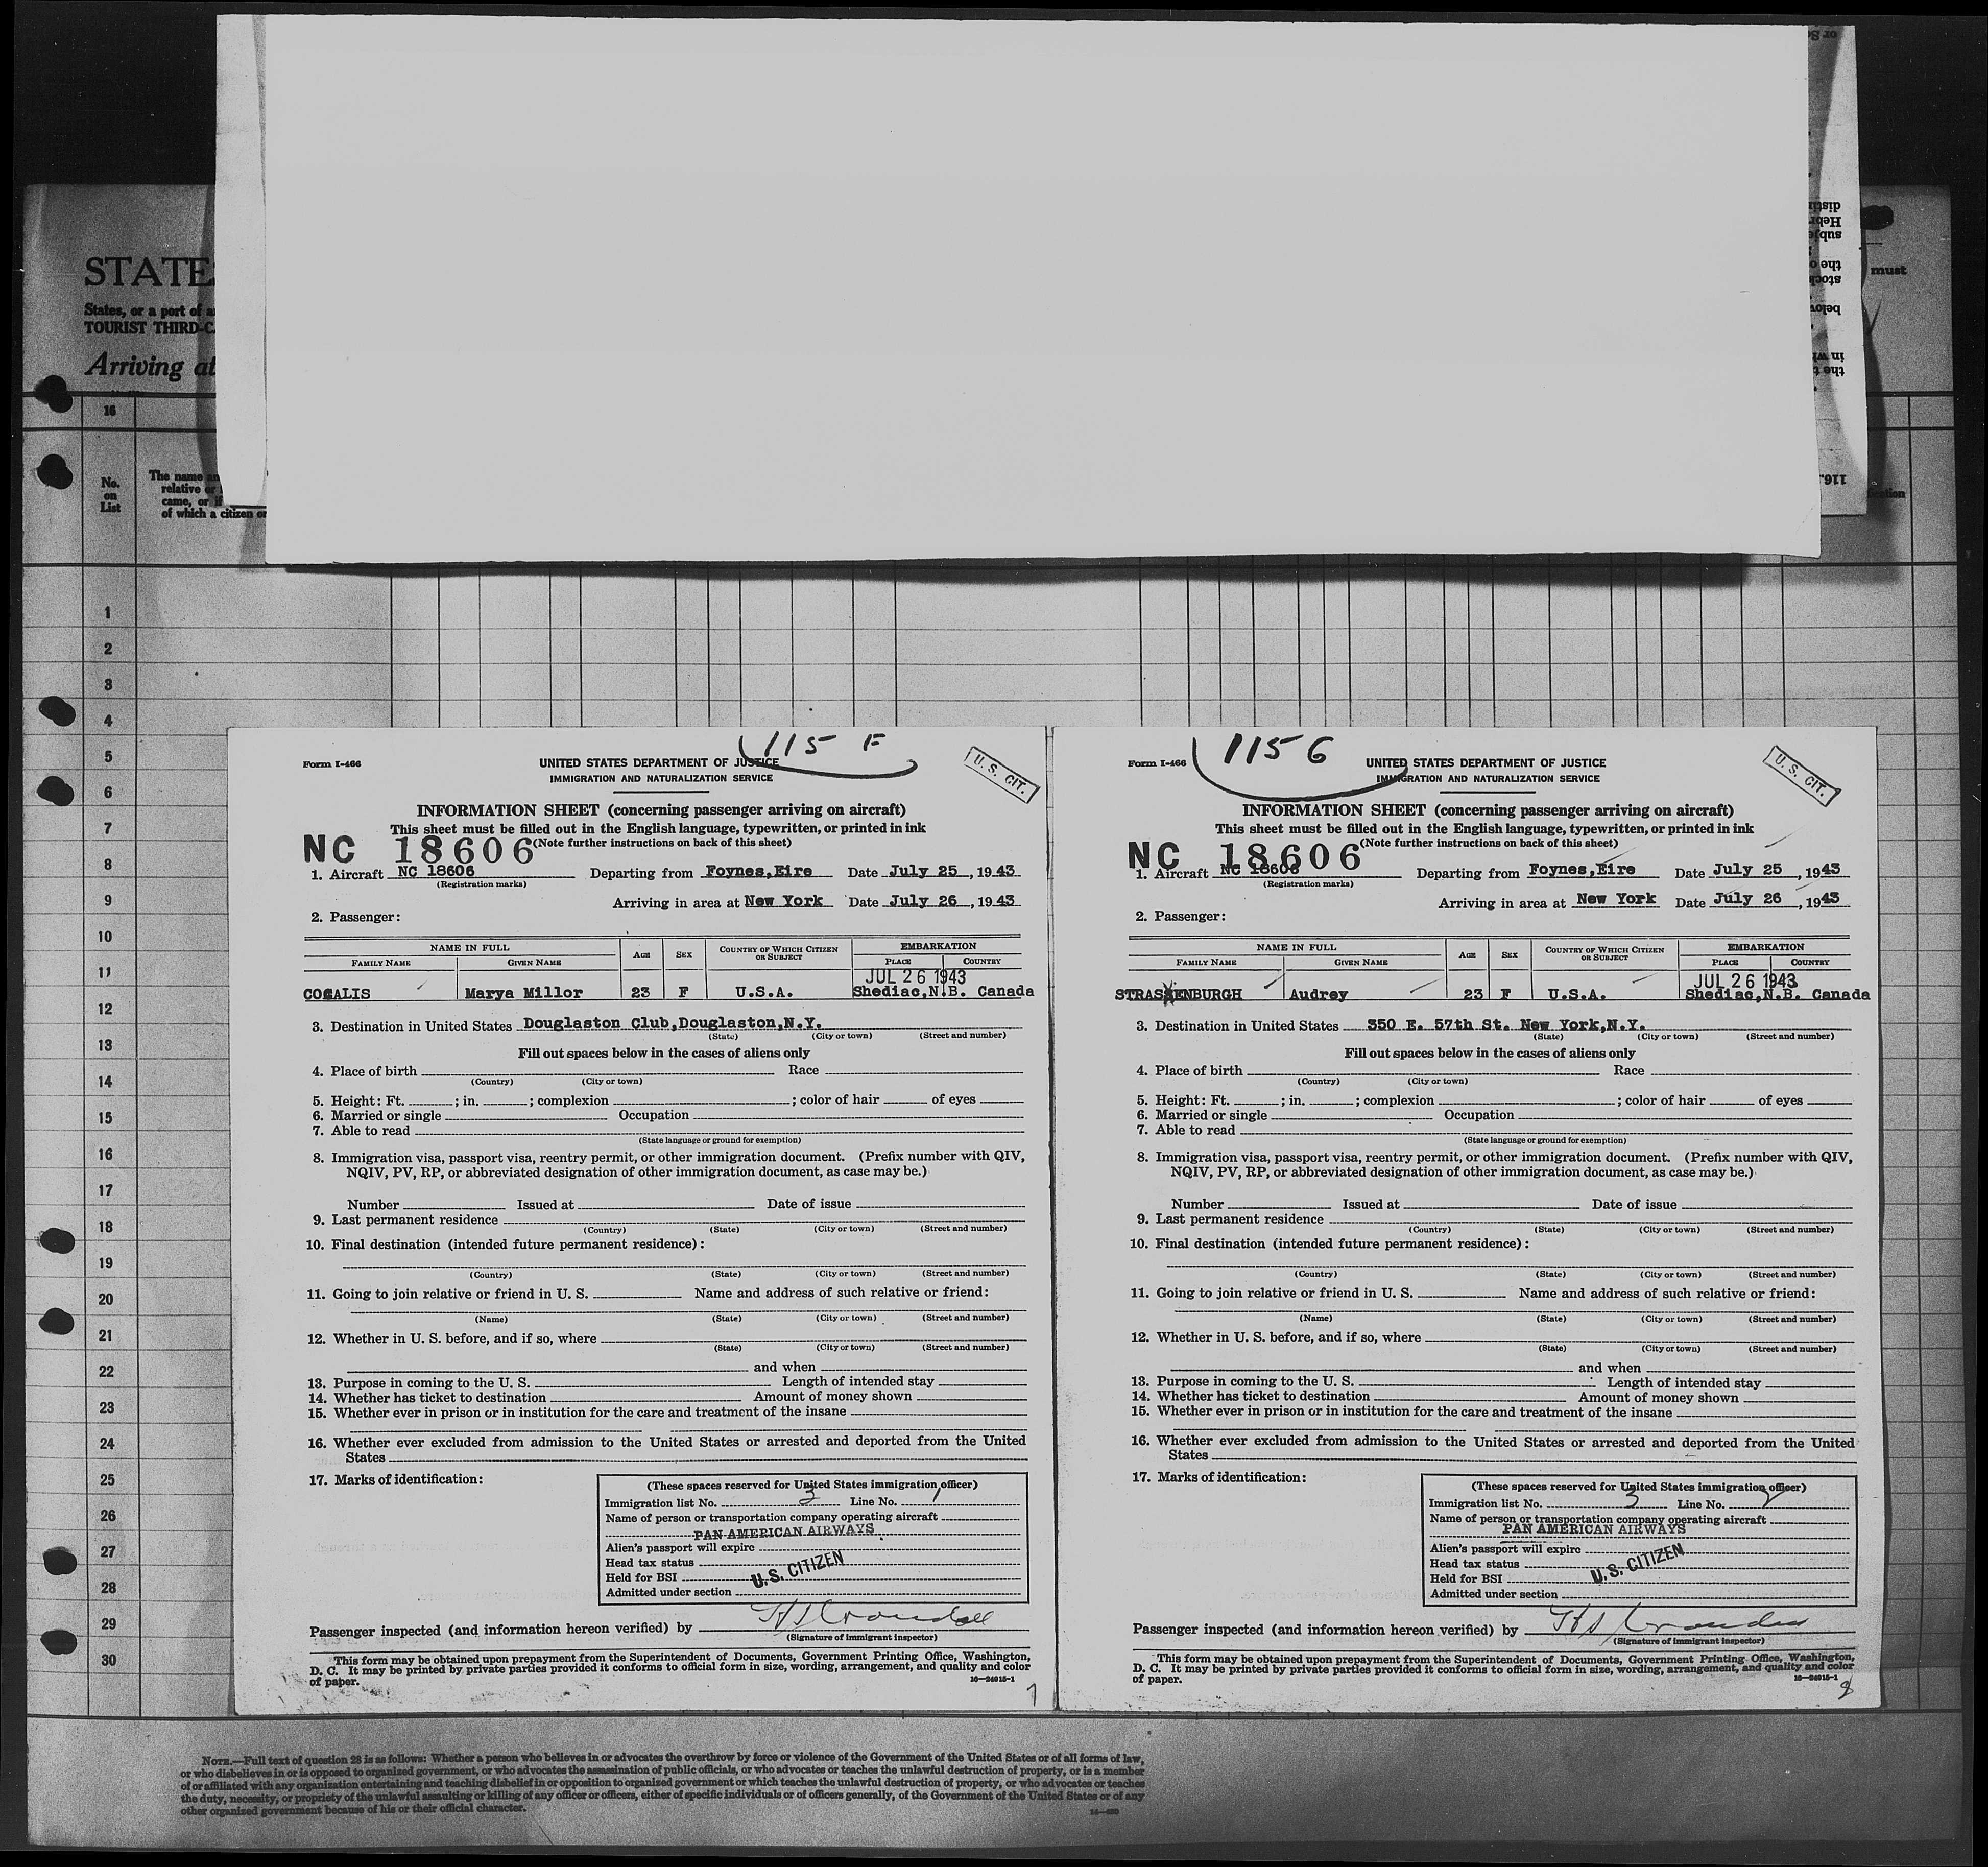 STATE
States, or a port of
TOURIST THIRD-C
Arriving at
16
No.
on
List
The name
relative or
came, or if
of which a citizen or
or S
distin
Hebr
subje
the o
stock
below
in w
the t
must
116.
1
2
3
4
5
6
7
8
9
10
11
12
13
14
15
16
17
18
19
20
21
22
23
24
25
26
27
28
29
30
115 F
Form I-466
UNITED STATES DEPARTMENT OF JUSTICE
IMMIGRATION AND NATURALIZATION SERVICE
U. S. CIT.
INFORMATION SHEET (concerning passenger arriving on aircraft)
This sheet must be filled out in the English language, typewritten, or printed in ink
(Note further instructions on back of this sheet)
NC 18606
1. Aircraft NC 18606 Departing from Foynes,Eire Date July 25, 1943
(Registration marks)
Arriving in area at New York Date July 26, 1943
2. Passenger:
NAME IN FULL
FAMILY NAME GIVEN NAME AGE SEX COUNTRY OF WHICH CITIZEN OR SUBJECT
EMBARKATION
PLACE COUNTRY
JUL 26 1943
Marya Millor 23 F U.S.A. Shediac,N.B. Canada
3. Destination in United States Douglaston Club,Douglaston,N.Y.
(State) (City or town) (Street and number)
Fill out spaces below in the cases of aliens only
4. Place of birth Race
(Country) (City or town)
5. Height: Ft. ; in. ; complexion ; color of hair of eyes
6. Married or single Occupation
7. Able to read
(State language or ground for exemption)
8. Immigration visa, passport visa, reentry permit, or other immigration document. (Prefix number with QIV,
NQIV, PV, RP, or abbreviated designation of other immigration document, as case may be.)
Number Issued at Date of issue
9. Last permanent residence
(Country) (State) (City or town) (Street and number)
10. Final destination (intended future permanent residence):
(Country) (State) (City or town) (Street and number)
11. Going to join relative or friend in U. S. Name and address of such relative or friend:
(Name) (State) (City or town) (Street and number)
12. Whether in U. S. before, and if so, where
(State) (City or town) (Street and number)
and when
13. Purpose in coming to the U. S. Length of intended stay
14. Whether has ticket to destination Amount of money shown
15. Whether ever in prison or in institution for the care and treatment of the insane
16. Whether ever excluded from admission to the United States or arrested and deported from the United
States
17. Marks of identification:
(These spaces reserved for United States immigration officer)
Immigration list No. 3 Line No. 1
Name of person or transportation company operating aircraft
PAN AMERICAN AIRWAYS
Alien's passport will expire
Head tax status
Held for BSI
U.S. CITIZEN
Admitted under section
Passenger inspected (and information hereon verified) by
(Signature of immigrant inspector)
This form may be obtained upon prepayment from the Superintendent of Documents, Government Printing Office, Washington,
D. C. It may be printed by private parties provided it conforms to official form in size, wording, arrangement, and quality and color
of paper.
16—24915-1
7
115 G
Form I-466
UNITED STATES DEPARTMENT OF JUSTICE
IMMIGRATION AND NATURALIZATION SERVICE
U. S. CIT.
INFORMATION SHEET (concerning passenger arriving on aircraft)
This sheet must be filled out in the English language, typewritten, or printed in ink
(Note further instructions on back of this sheet)
NC 18606
1. Aircraft NC 18606 Departing from Foynes,Eire Date July 25, 1943
(Registration marks)
Arriving in area at New York Date July 26, 1943
2. Passenger:
NAME IN FULL
FAMILY NAME GIVEN NAME AGE SEX COUNTRY OF WHICH CITIZEN OR SUBJECT
EMBARKATION
PLACE COUNTRY
JUL 26 1943
Audrey 23 F U.S.A. Shediac,N.B. Canada
3. Destination in United States 350 E. 57th St. New York,N.Y.
(State) (City or town) (Street and number)
Fill out spaces below in the cases of aliens only
4. Place of birth Race
(Country) (City or town)
5. Height: Ft. ; in. ; complexion ; color of hair of eyes
6. Married or single Occupation
7. Able to read
(State language or ground for exemption)
8. Immigration visa, passport visa, reentry permit, or other immigration document. (Prefix number with QIV,
NQIV, PV, RP, or abbreviated designation of other immigration document, as case may be.)
Number Issued at Date of issue
9. Last permanent residence
(Country) (State) (City or town) (Street and number)
10. Final destination (intended future permanent residence):
(Country) (State) (City or town) (Street and number)
11. Going to join relative or friend in U. S. Name and address of such relative or friend:
(Name) (State) (City or town) (Street and number)
12. Whether in U. S. before, and if so, where
(State) (City or town) (Street and number)
and when
13. Purpose in coming to the U. S. Length of intended stay
14. Whether has ticket to destination Amount of money shown
15. Whether ever in prison or in institution for the care and treatment of the insane
16. Whether ever excluded from admission to the United States or arrested and deported from the United
States
17. Marks of identification:
(These spaces reserved for United States immigration officer)
Immigration list No. 3 Line No. 2
Name of person or transportation company operating aircraft
PAN AMERICAN AIRWAYS
Alien's passport will expire
Head tax status
Held for BSI
U.S. CITIZEN
Admitted under section
Passenger inspected (and information hereon verified) by
(Signature of immigrant inspector)
This form may be obtained upon prepayment from the Superintendent of Documents, Government Printing Office, Washington,
D. C. It may be printed by private parties provided it conforms to official form in size, wording, arrangement, and quality and color
of paper.
16—24915-1
8
NOTE.—Full text of question 28 is as follows: Whether a person who believes in or advocates the overthrow by force or violence of the Government of the United States or of all forms of law,
or who disbelieves in or is opposed to organized government, or who advocates the assassination of public officials, or who advocates or teaches the unlawful destruction of property, or is a member
of or affiliated with any organization entertaining and teaching disbelief in or opposition to organized government or which teaches the unlawful destruction of property, or who advocates or teaches
the duty, necessity, or propriety of the unlawful assaulting or killing of any officer or officers, either of specific individuals or of officers generally, of the Government of the United States or of any
other organized government because of his or their official character.